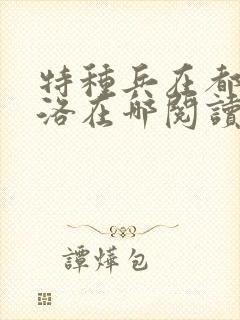 特種兵在都
洛在哪閱讀
譚燁包